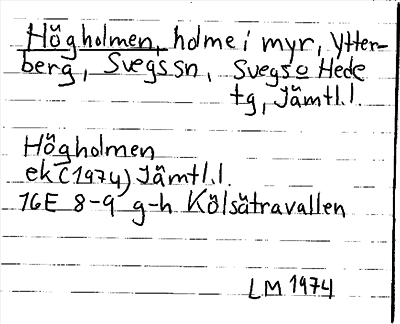 Högholmen, holme i myr, Ytter-
berg, Svegs sn, Svegs o Hede
tg, Jämtl.l.
Högholmen
ek (1974) Jämtl.l.
16E 8-9 g-h Kölsätravallen
LM 1974